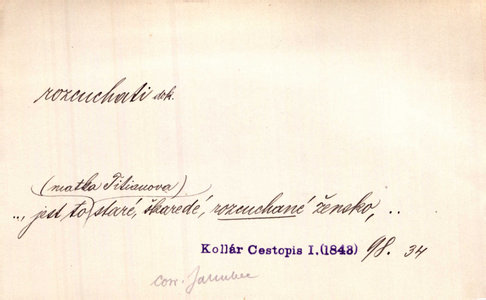 rozcuchati dok.
(matka Titianova)
.., jest to staré, škaredé, rozcuchané žensko, ..
Kollár Cestopis I.(1843) 98. 34